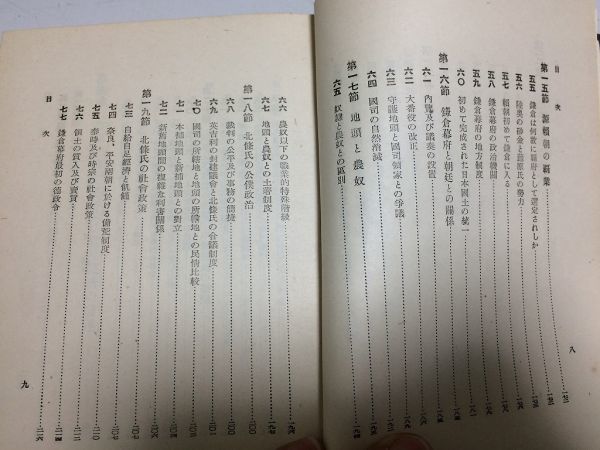 目次
第一五節 源頼朝の覇業
五五 鎌倉は何故に覇府として選定されしか
五六 陸奥の砂金と藤原氏の勢力
五七 頼朝初めて鎌倉に入る
五八 鎌倉幕府の政治機關
五九 鎌倉幕府の地方制度
六〇 初めて完成された日本國土の統一
第一六節 鎌倉幕府と朝廷との關係
六一 内覽及び議奏の設置
六二 大番役の改正
六三 守護地頭と國司領家との爭議
六四 國司の自然消滅
第一七節 地頭と農奴
六五 奴隷と農奴との區別
八
六六 農奴以下の職業的特殊階級
六七 地頭と農奴との土着制度
第一八節 北條氏の公僕政治
六八 裁判の公平及び事務の簡捷
六九 英吉利の封建議會と北條氏の會議制度
七〇 國司の所轄地と地頭の所轄地との民情比較
七一 本補地頭と新補地頭との對立
七二 新舊地頭間の複雜な利害關係
第一九節 北條氏の社會政策
七三 自給自足經濟と飢饉
七四 奈良、平安兩朝に於ける備荒制度
七五 泰時及び時宗の社會政策
七六 領土の質入及び賣買
七七 鎌倉幕府最初の德政令
目次
九